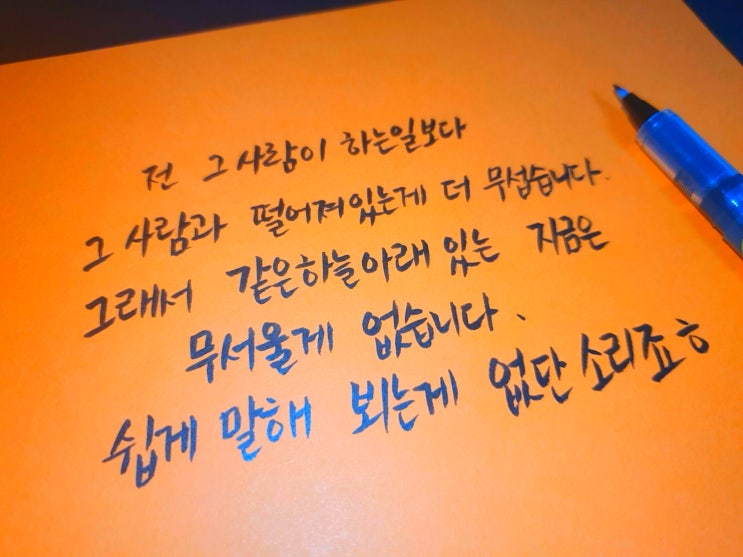 전 그 사람이 하는일보다
그 사람과 떨어져있는게 더 무섭습니다.
그래서 같은하늘아래 있는 지금은
무서울게 없습니다.
쉽게 말해 뵈는게 없단 소리죠ㅎ